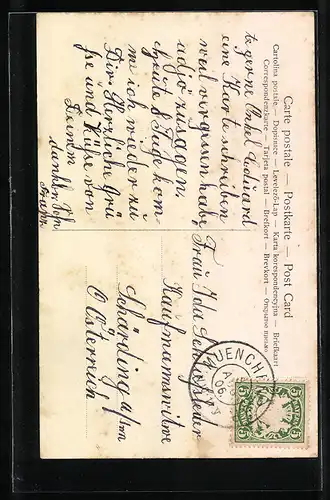 Carte postale — Postkarte — Post Card
Cartolina postale — Dopisnice — Levelező-Lap — Karta korespondencyjna — Briefkaart
Correspondenzkarte — Tarjeta postal — Brefkort — Brevkort —
te gerne Onkel Eduard
eine Karte schreiben
weil vergessen habe
adjö zu sagen.
heute 8 Tage kom-
me ich wieder zu
Dir Herzliche Grü
ße und Küße von
Deinem
dankb.
Frau Ida
Kaufmannswitwe
Schärding a/Inn
Österreich
MUENCHEN
06
5 5
5 5